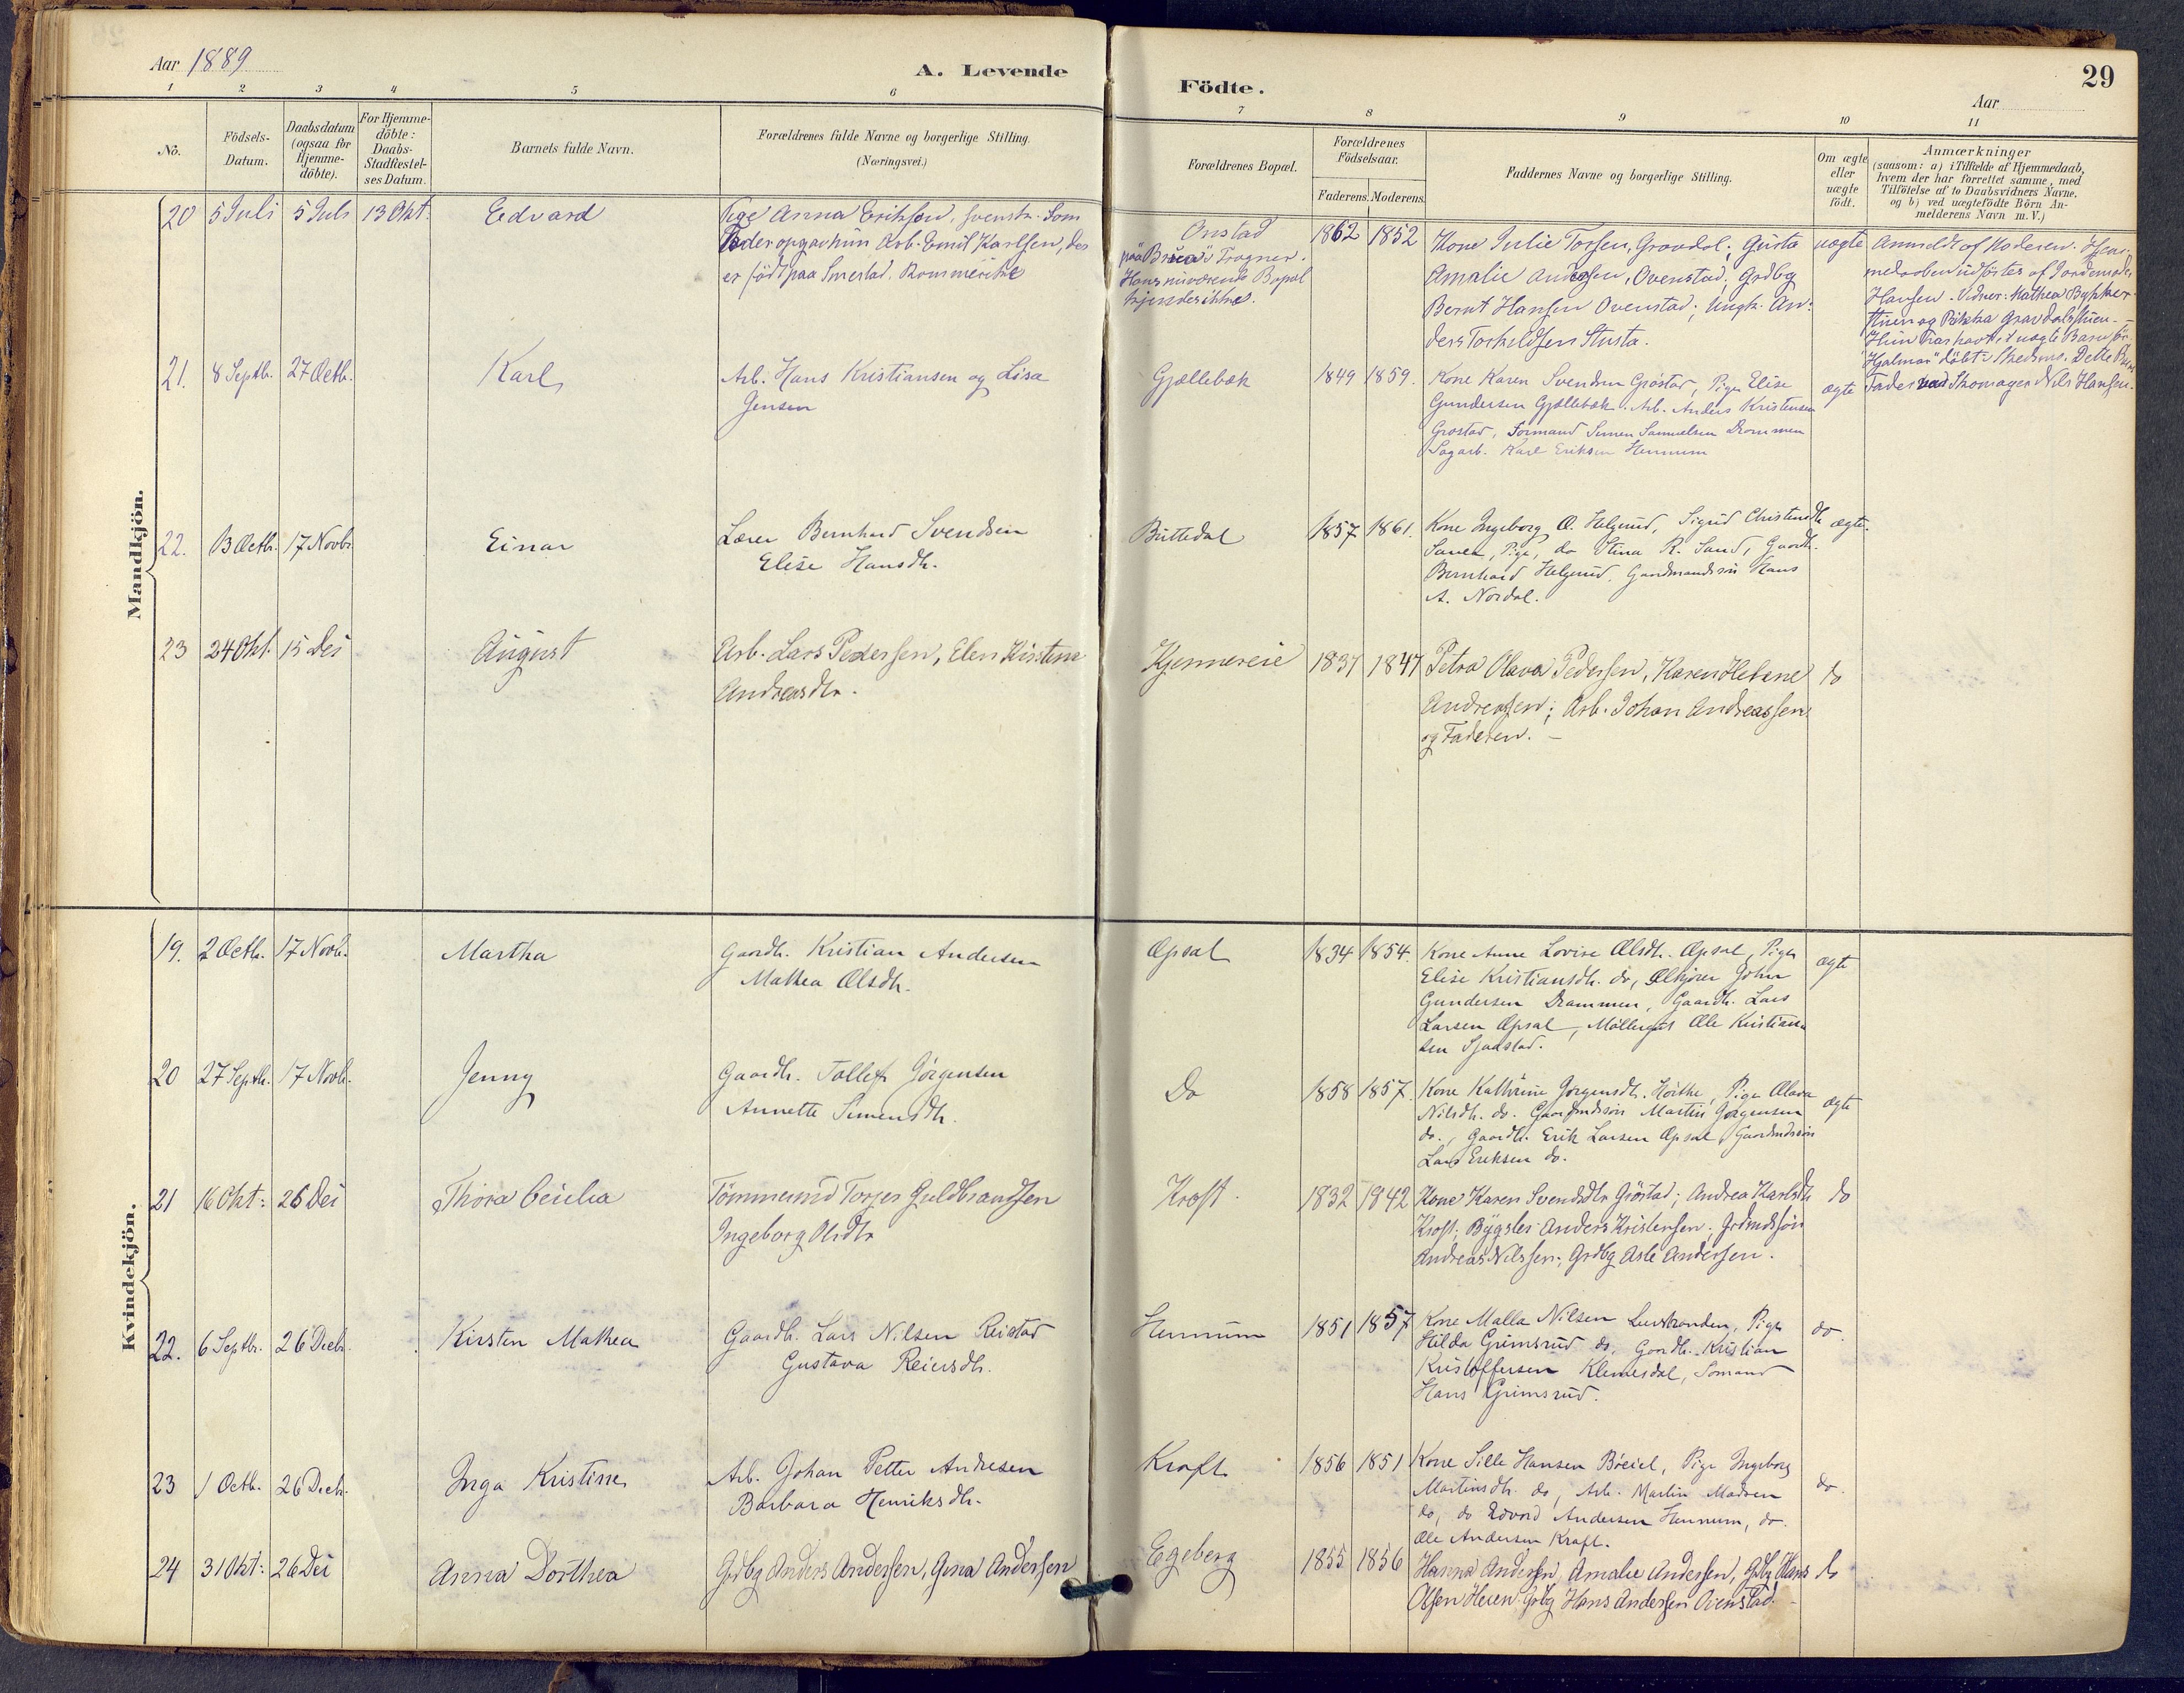 Aar 1889
A. Levende Födte.
29
Aar
1 2 3 4 5 6 7 8 9 10 11
No.
Födsels-
Datum.
Daabsdatum
(ogsaa for
Hjemme-
döbte).
For Hjemme-
döbte:
Daabs-
Stadfæstel-
ses Datum.
Barnets fulde Navn.
Forældrenes fulde Navne og borgerlige Stilling.
(Næringsvei.)
Forældrenes Bopæl.
Forældrenes
Födselsaar.
Faderens. Moderens.
Faddernes Navne og borgerlige Stilling.
Om ægte
eller
uægte
födt.
Anmærkninger
(saasom: a) i Tilfælde af Hjemmedaab,
hvem der har forrettet samme, med
Tilföielse af to Daabsvidners Navne,
og b) ved uægtefödte Börn An-
melderens Navn m. V.)
Mandkjön.
20 5 Juli 5 Juli 13 Okt. Edvard
Pige Anna Eriksen, svensk. Som
Fader opgav hun Arb. Emil Karlsen, der
er född paa Smestad. Rommerike
Onstad
paa Frogner.
Hans nuværende Bopæl
kjendes ikke.
1862 1852
Kone Julie Torsen, Gravdal; Gusta
Amalie Andersen, Ovenstad; Grdbg
Bernt Hansen Ovenstad; Ungk. An-
ders Torkeldsen Stusta.
uægte
Anmeldt af Moderen. Hjem-
medaaben udförtes af Jordemoder
Hansen. Vidner: Mathea
og Rikka Gravdalshuen.
Hun har havt 1 uægte Barn för
"Hjalmar" döbt i Skedsmo. Dette Barns
Fader var Skomager Nils Hansen.
21. 8 Septb. 27 Octb. Karl
Arb. Hans Kristiansen og Lisa
Jensen
Gjællebæk
1849 1859.
Kone Karen Svendsen Gröstad, Pige Elise
Gundersen Gjællebæk. Arb. Anders Kristensen
Grostad, Formand Simen Samuelsen Drammen
Sagarb. Karl Eriksen Hennum
ægte
22. 13 Octb. 17 Novbr. Einar
Lærer Bernhard Svendsen
Elise Hansdh.
Buttedal
1857 1861.
Kone Ingeborg O. Helgerud, Sigrid Christensdh.
Pige, do Stina R. Sand, Gaardb.
Bernhard Helgerud, Gaardmandssön Hans
A. Nordal.
ægte
23 24 Okt. 15 Des August
Arb. Lars Pedersen, Elen Kirstine
Andreasdtr.
Kjennereie
1837 1847
Petra Olava Pedersen, Karen Helene
Andreassen; Arb. Johan Andreassen
og Faderen.
do
Kvindekjön.
19. 2 Octb. 17 Novb. Martha
Gaardb. Kristian Andersen
Mathea Olsdh.
Opsal
1834 1854.
Kone Anne Lovise Olsdh. Opsal, Pige
Elise Kristiansdh. do, Ølkjører Johan
Gundersen Drammen, Gaardb. Lars
Larsen Opsal, Möllergut Ole Kristian-
sen Sjaastad.
ægte
20 27 Septb. 17 Novb. Jenny
Gaardb. Tollef Jörgensen
Annette Simensdh.
Do
1858 1857.
Kone Kathrine Jörgensdh. Hörthe, Pige Olava
Nilsdh. do. Gaardmdssön Martin Jörgensen
do., Gaardb. Erik Larsen Opsal, Gaardmdssön
Lars Eriksen do.
ægte
21 16 Okt: 26 Des Thora Cecilia
Tömmermd Torger Guldbrandsen
Ingeborg Olsdtr
Kroft.
1832 1842
Kone Karen Svendsdtr Gröstad; Andrea Karlsdtr
Kroft, Bygsler Anders Kristensen, Grdmdssön
Andreas Nilssen, Grdbg Asle Andersen.
do
22. 6 Septbr. 26 Decbr. Kirsten Mathea
Gaardb. Lars Nilsen Reistad
Gustava Reiersdh.
Hennum
1851 1857
Kone Malla Nilsen Lierstranden, Pige
Hilda Grimsrud do, Gaardb. Kristian
Kristoffersen Klemesdal, Sömand
Hans Grimsrud.
do.
23 1 Octb. 26 Decb. Inga Kristine
Arb. Johan Petter Andresen
Barbara Henriksdh.
Kraft
1856 1851
Kone Sille Hansen Pige Ingeborg
Martinsdh. do, Arb. Martin Madsen
do, do Edvard Andersen Hennum, do.
Ole Andersen Kraft.
do.
24 31 Okt: 26 Des Anna Dorthea
Grdbg Anders Andersen, Gina Andersen
Egeberg
1855 1856
Hanna Andersen, Amalie Andersen, Grdbg Hans
Olsen Heien, Grdbg Hans Andersen Ovenstad.
do